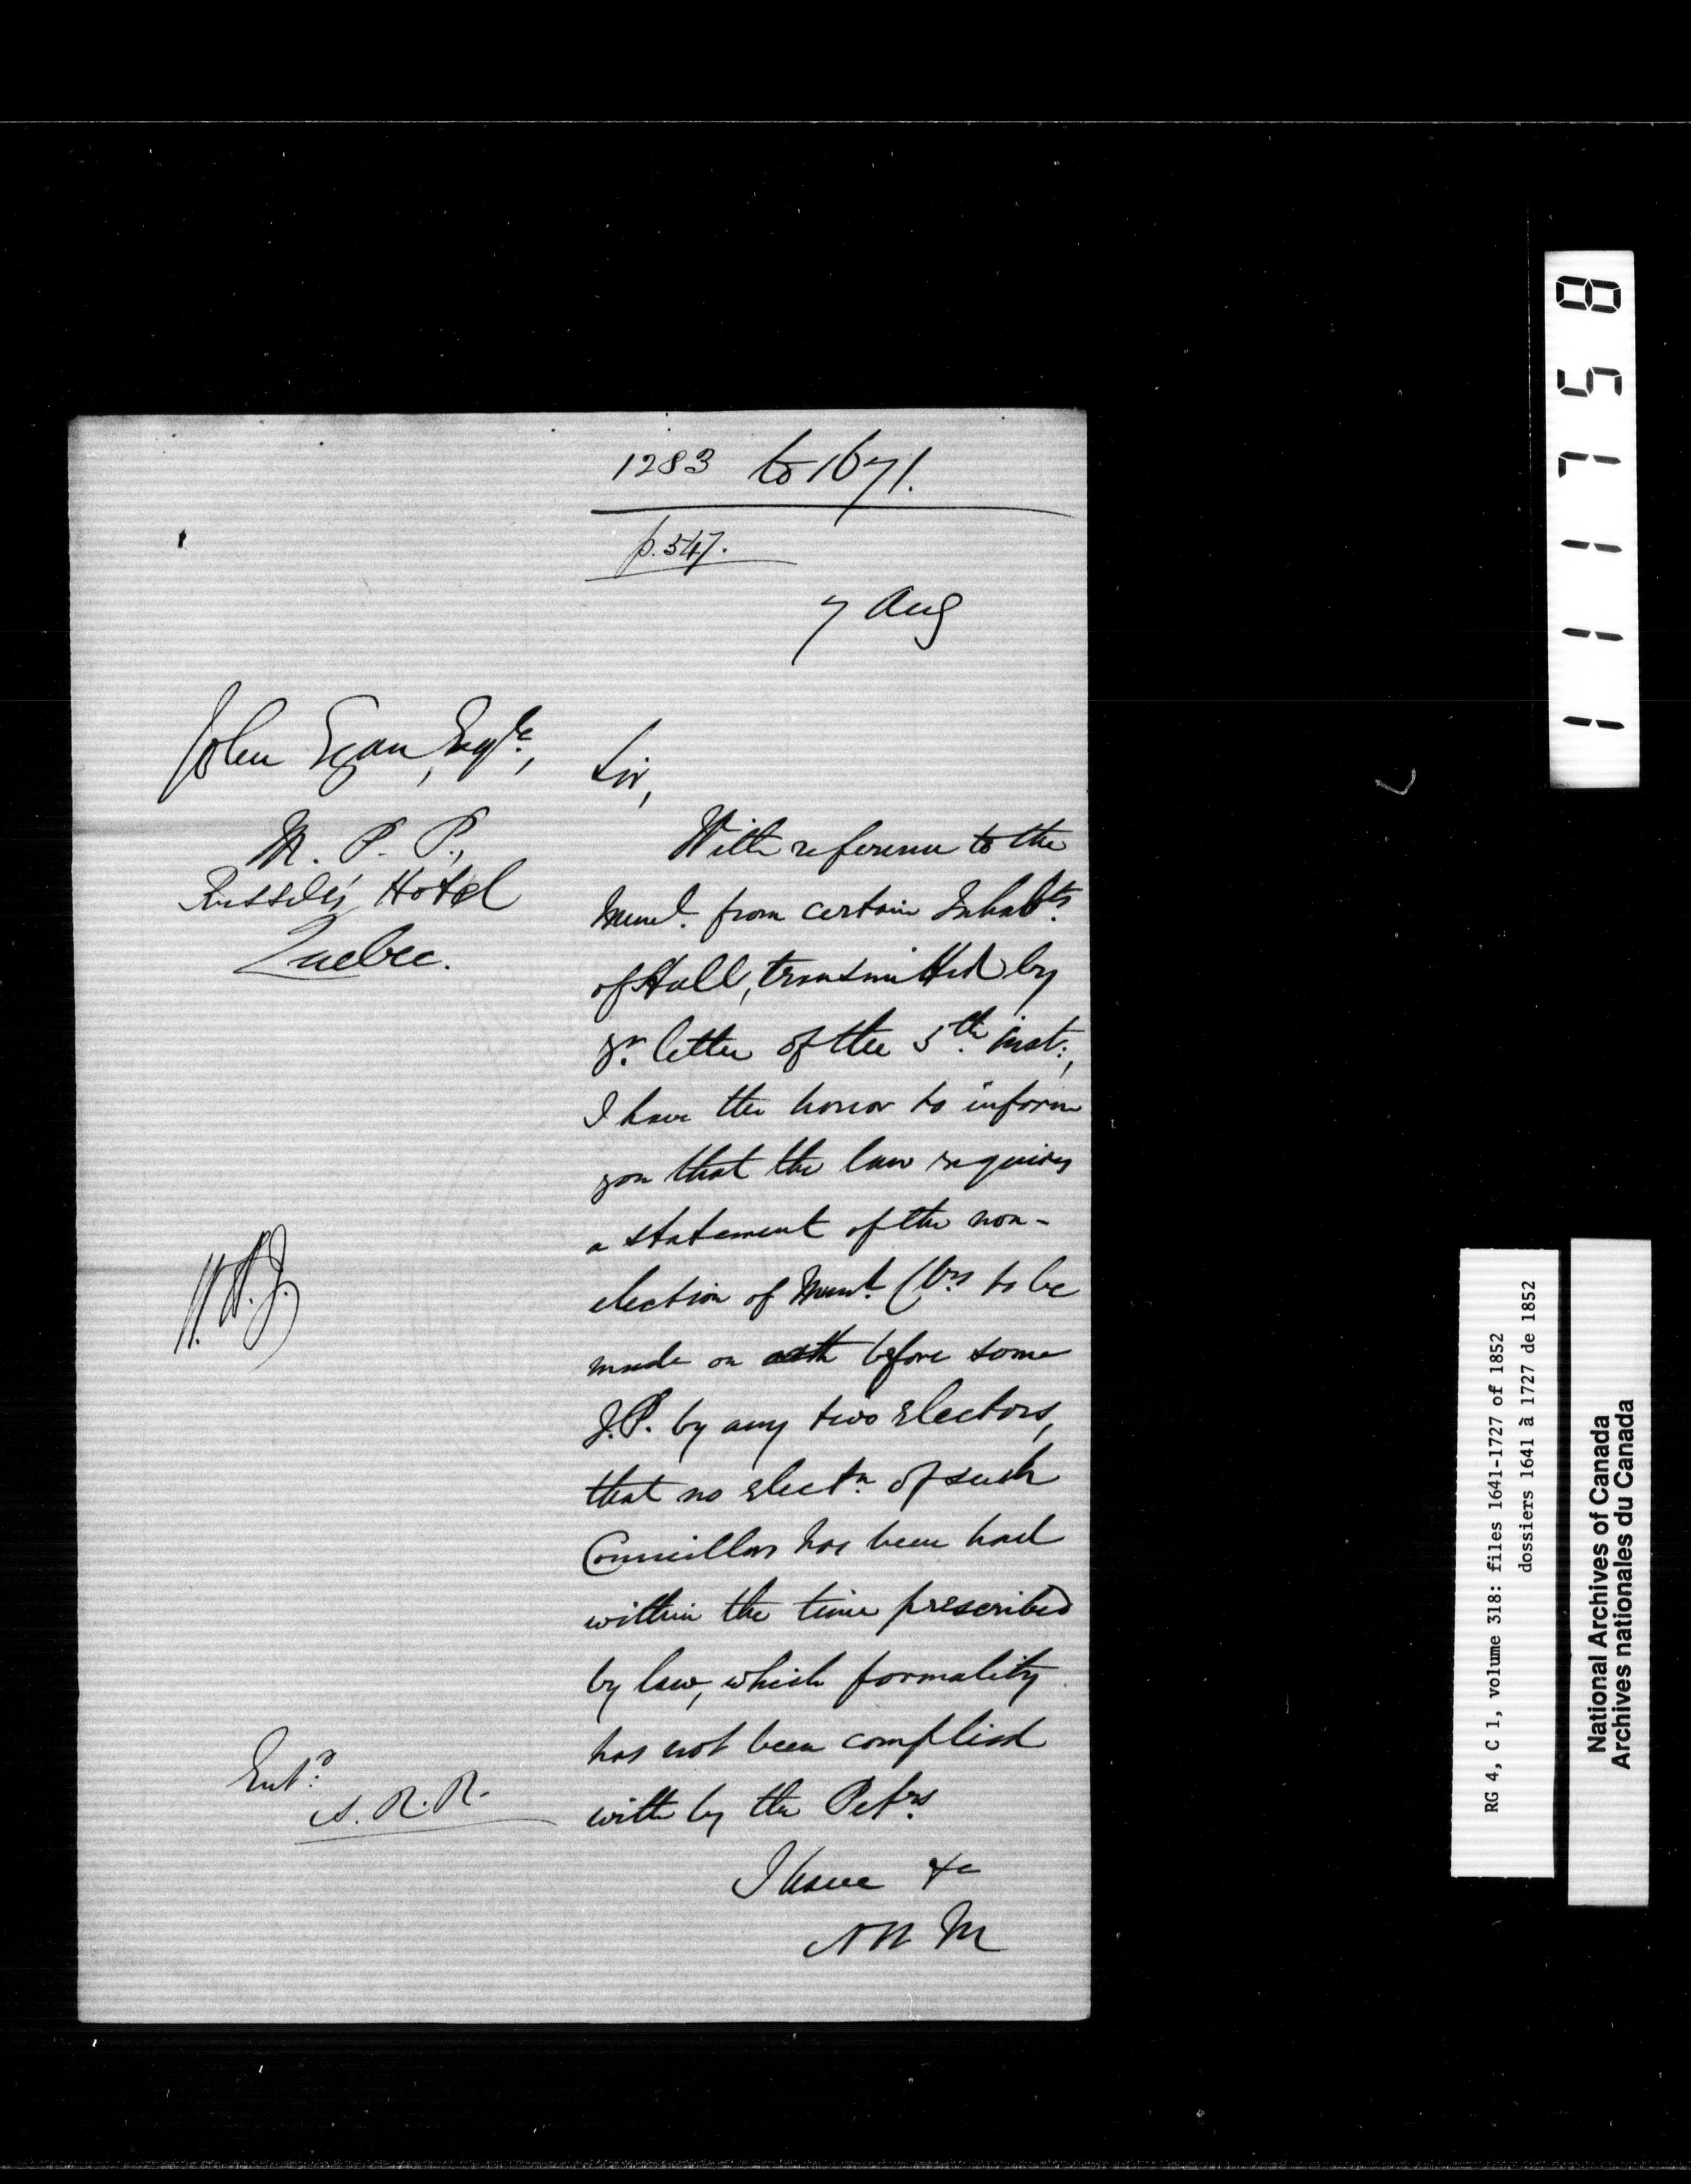 1283 to 1671.
p. 547.
7 Aug
John Egan, Esqre.,
M. P. P.,
Russell's Hotel
Quebec.
Sir,
With reference to the
Meml. from certain Inhabts.
of Hull, transmitted by
yr. letter of the 5th. inst:,
I have the honor to inform
you that the law requires
a statement of the non-
election of Munl. Clrs. to be
made on oath before some
J.P. by any two Electors,
that no electn. of such
Councillors has been had
within the time prescribed
by law, which formality
has not been complied
with by the Petrs.
I have &c
A N M
Entd.
A. R. R.
111758
RG 4, C 1, volume 318: files 1641-1727 of 1852
dossiers 1641 à 1727 de 1852
National Archives of Canada
Archives nationales du Canada